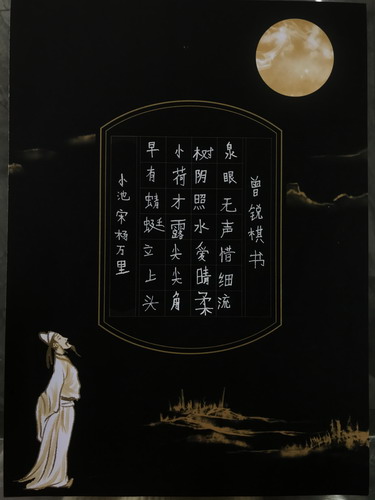 曾锐棋书
泉眼无声惜细流
树阴照水爱晴柔
小荷才露尖尖角
早有蜻蜓立上头
小池宋杨万里